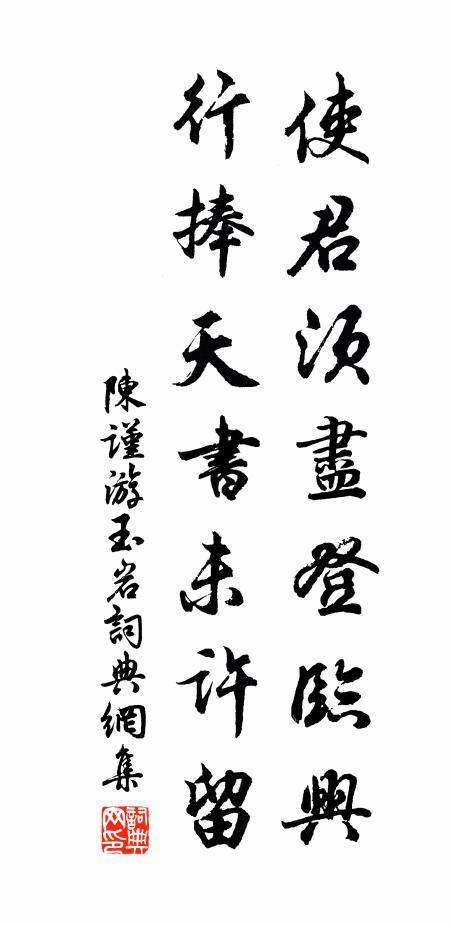 使君須盡登臨興
行捧天書未許留
陳謹游玉岩詞典網集
詞典网印